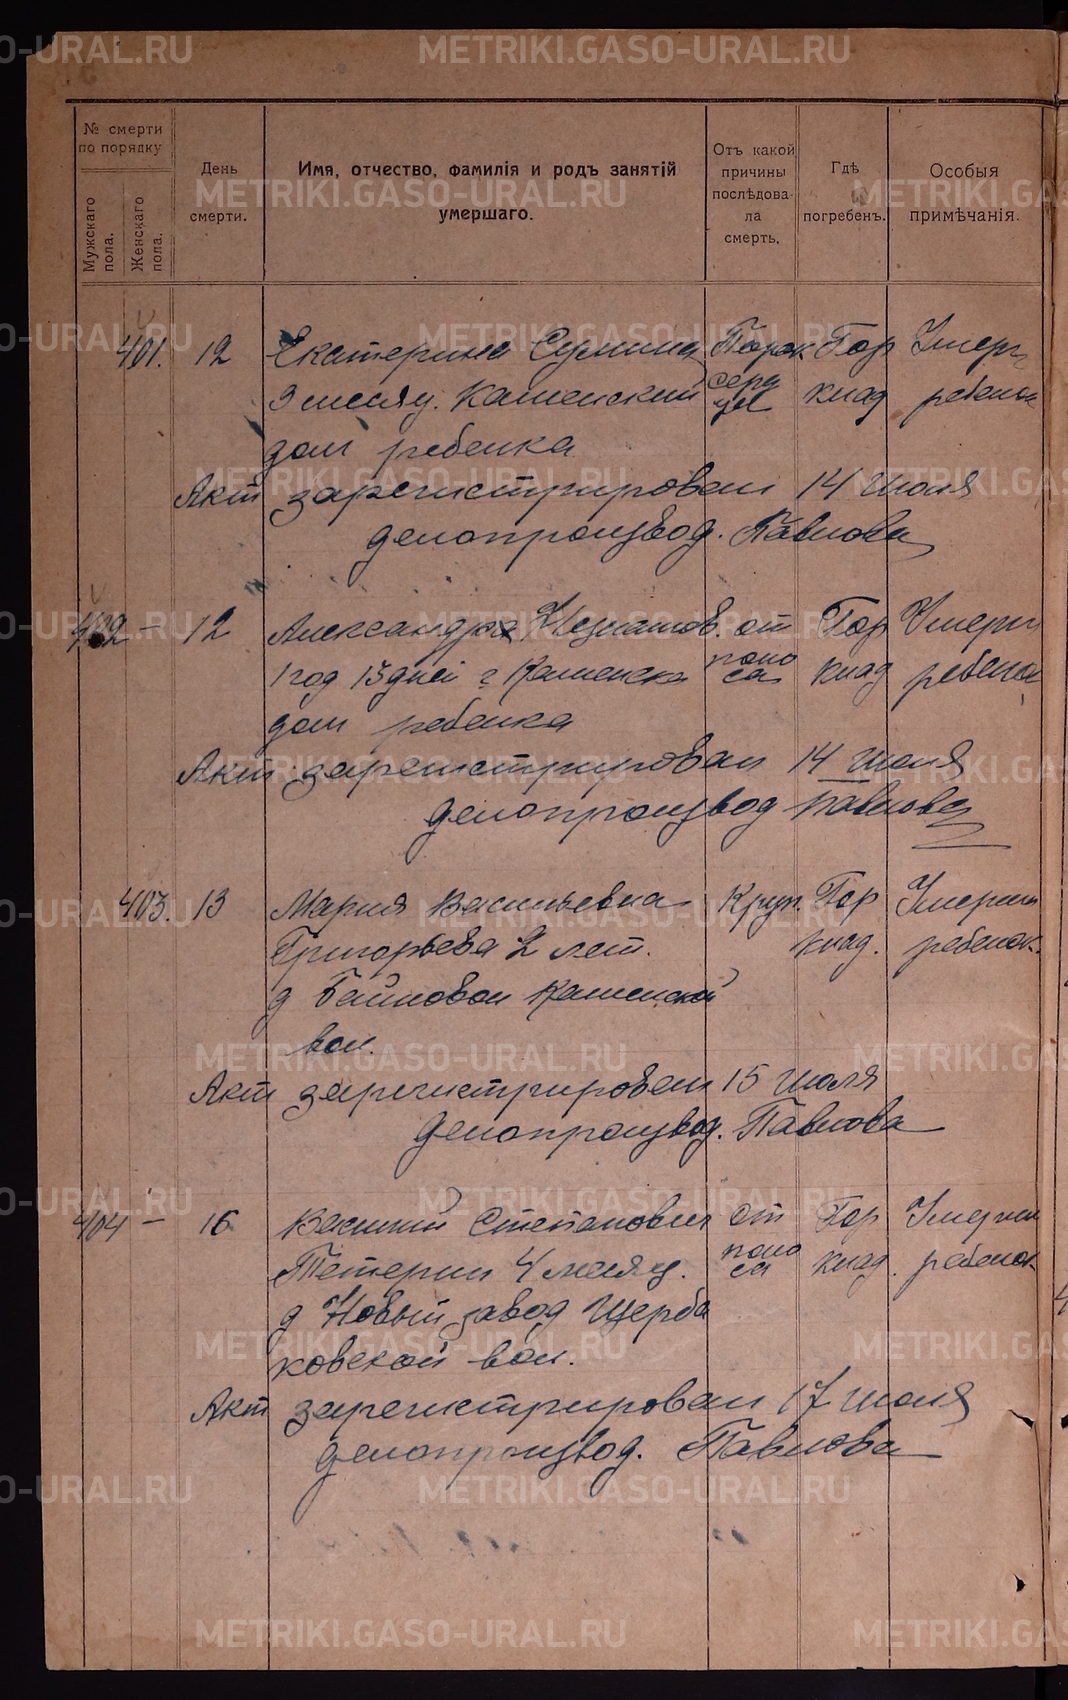 № смерти
по порядку
Мужскаго
пола.
Женскаго
пола.
День
смерти.
Имя, отчество, фамилія и родъ занятій
умершаго.
Отъ какой
причины
послѣдова-
ла
смерть.
Гдѣ
погребенъ.
Особыя
примѣчанія.
401. 12 Екатерина Сумина Порок Гор Умерш
9 месяц. Каменский серд клад ребенок
ца
дом ребенка
Акт зарегистрирован 14 июля
делопроизвод. Павлова
402 — 12 Александр от Гор Умерш
1 год 13 дней г Каменска поно клад ребенок
са
дом ребенка
Акт зарегистрирован 14 июля
делопроизвод Павлова
403. 13 Мария Васильевна Круп. Гор Умерший
Григорьева 2 лет. клад. ребенок.
д Байновой Каменской
вол.
Акт зарегистрирован 15 июля
делопроизвод. Павлова
404 — 16 Василий Степанович от Гор Умерший
Тетерин 4 месяц. поно клад. ребенок
са
д Новый завод Щерба
ковской вол.
Акт зарегистрирован 17 июля
делопроизвод. Павлова
METRIKI.GASO-URAL.RU